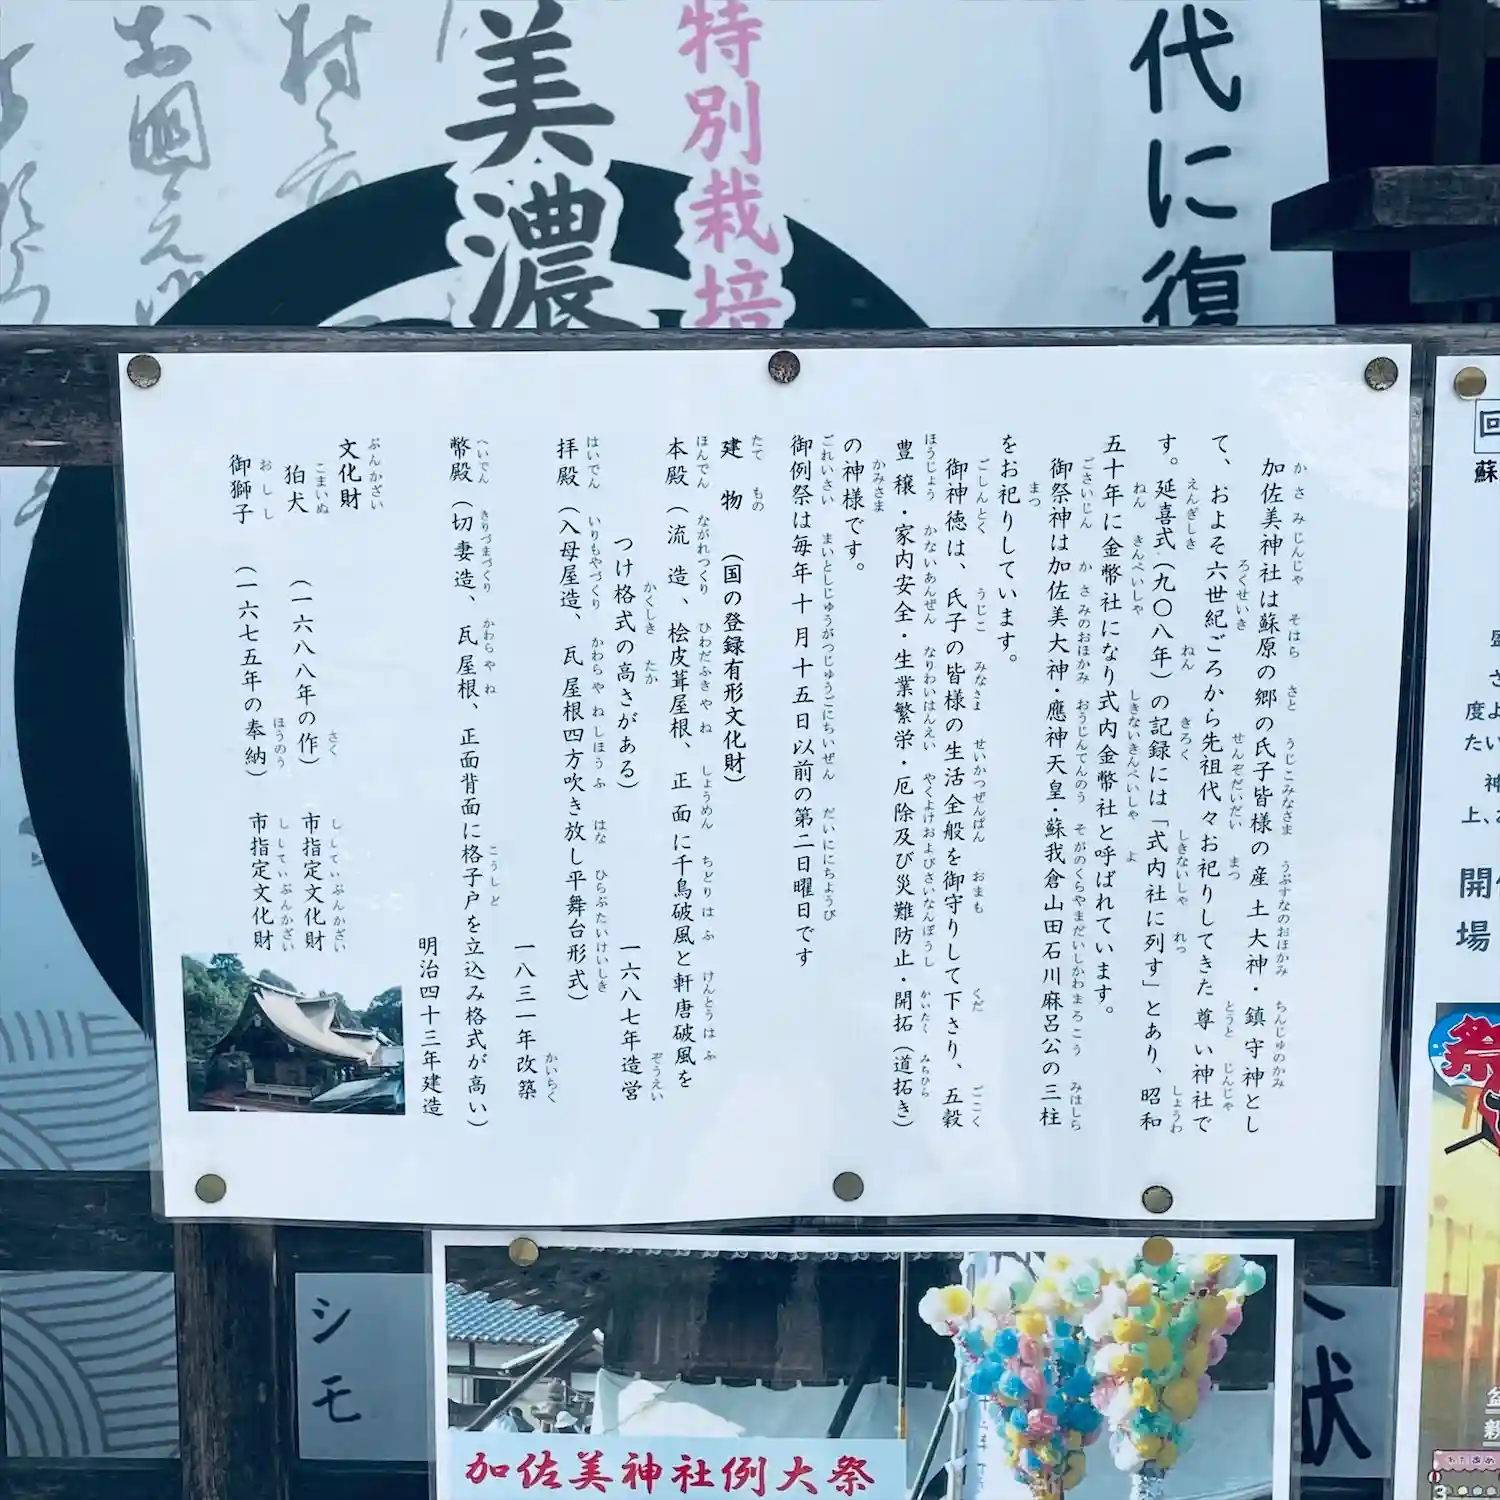 代に復
特別栽培
美濃
加佐美神社は蘇原の郷の氏子皆様の産土大神・鎮守神とし
て、およそ六世紀ごろから先祖代々お祀りしてきた尊い神社で
す。延喜式（九〇八年）の記録には「式内社に列す」とあり、昭和
五十年に金幣社になり式内金幣社と呼ばれています。
御祭神は加佐美大神・應神天皇・蘇我倉山田石川麻呂公の三柱
をお祀りしています。
御神徳は、氏子の皆様の生活全般を御守りして下さり、五穀
豊穣・家内安全・生業繁栄・厄除及び災難防止・開拓（道拓き）
の神様です。
御例祭は毎年十月十五日以前の第二日曜日です
建物　（国の登録有形文化財）
本殿（流造、桧皮葺屋根、正面に千鳥破風と軒唐破風を
つけ格式の高さがある）　一六八七年造営
拝殿（入母屋造、瓦屋根四方吹き放し平舞台形式）
一八三一年改築
幣殿（切妻造、瓦屋根、正面背面に格子戸を立込み格式が高い）
明治四十三年建造
文化財
狛犬　（一六八八年の作）　市指定文化財
御獅子　（一六七五年の奉納）　市指定文化財
加佐美神社例大祭
シモ
献
回
蘇
度よ
たい
神
上、
開催
場
祭